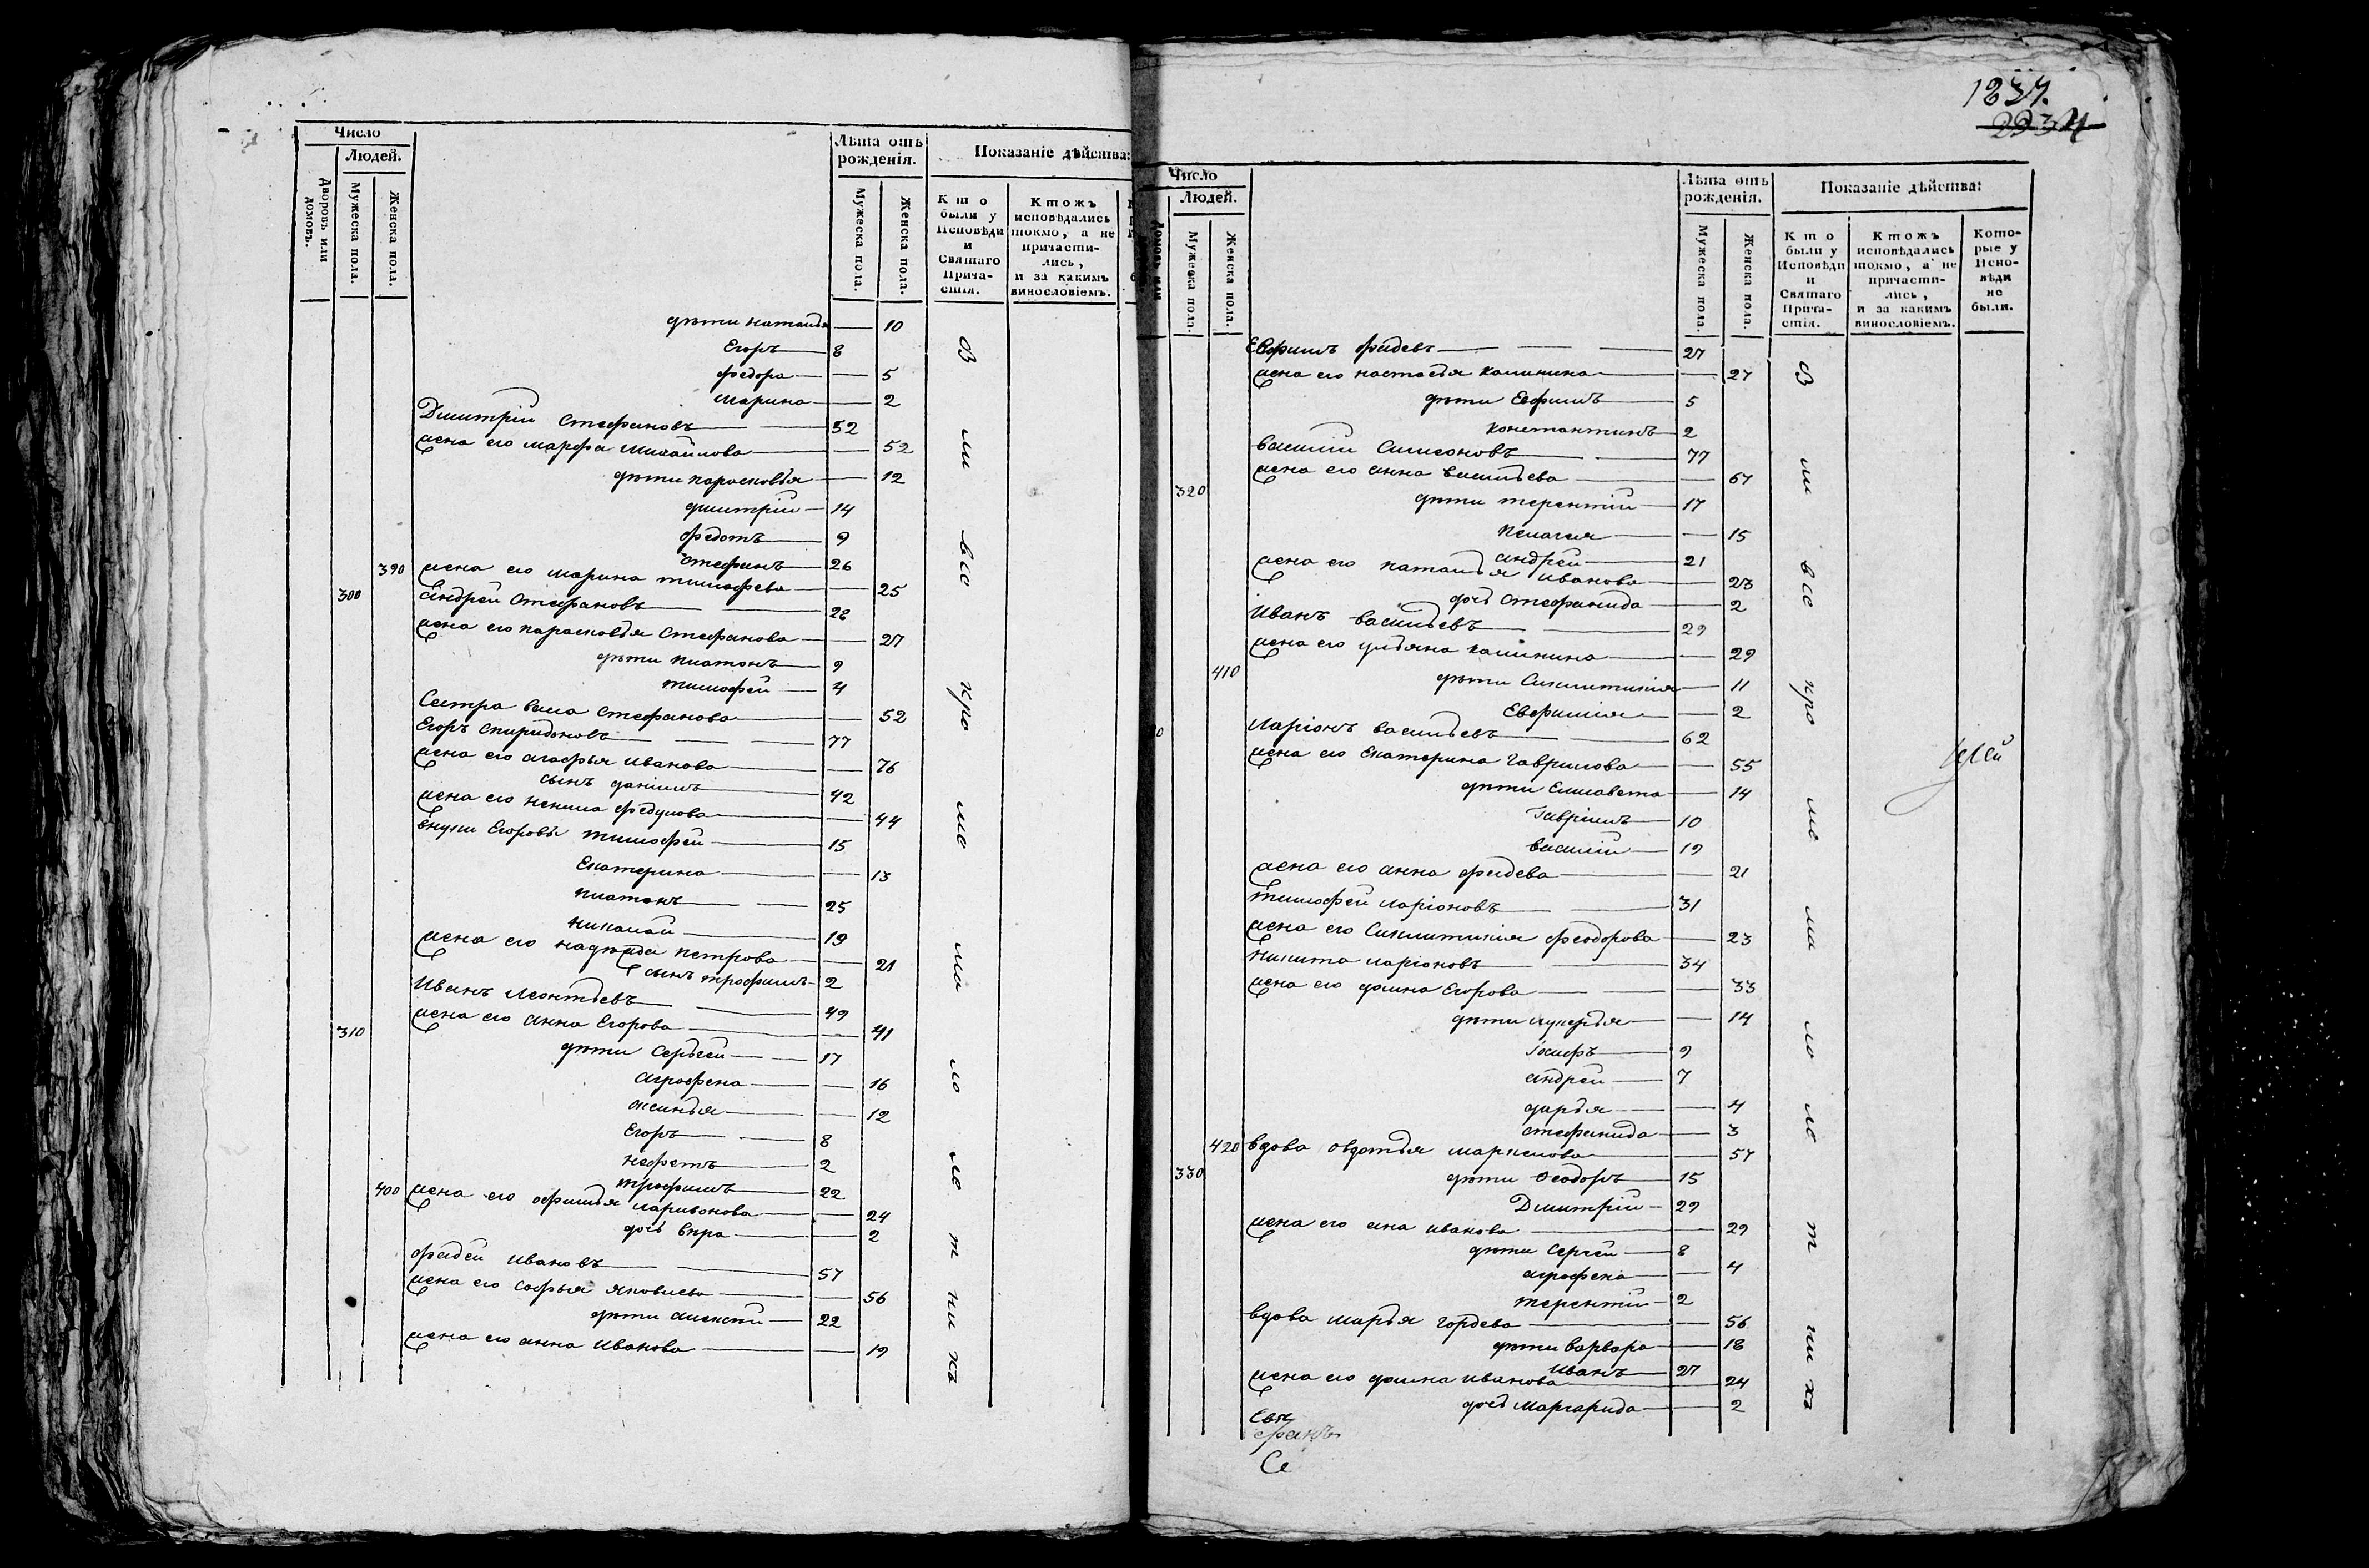 Число
Людей.
Дворовъ или домовъ.
Мужеска пола.
Женска пола.
Лѣта отъ рожденія.
Мужеска пола.
Женска пола.
Показаніе дѣйства:
Кто были у Исповѣди и Святаго Причастія.
Ктожъ исповѣдались токмо, а не причастились, и за какимъ винословіемъ.
дѣти наталья — 10
Егоръ — 8
федора — 5
марина — 2
Дмитрій Стефановъ — 52
жена его марфа михайлова — 52
дѣти парасковья — 12
дмитрій — 14
федотъ — 9
стефанъ — 26
390 жена его марина тимофеева — 25
300 андрей Стефановъ — 28
жена его парасковья Стефанова — 27
дѣти платонъ — 9
тимофей — 4
Сестра васа стефанова — 52
Егоръ спиридоновъ — 77
жена его агафья иванова — 76
сынъ даніилъ — 42
жена его федулова — 44
внуки Егоровы тимофей — 15
Екатерина — 13
платонъ — 25
николай — 19
жена его надежда петрова — 21
сынъ трофимъ — 2
Иванъ леонтьевъ — 49
310 жена его анна Егорова — 41
дѣти сергѣй — 17
аграфена — 16
аксинья — 12
Егоръ — 8
нефетъ — 2
трофимъ — 22
400 жена его офимья ларивонова — 24
дочь вѣра — 2
фадей ивановъ — 57
жена его софья яковлева — 56
дѣти алексѣй — 22
жена его анна иванова — 19
1237.
2234
Число
Людей.
Домовъ или
Мужеска пола.
Женска пола.
Лѣта отъ рожденія.
Мужеска пола.
Женска пола.
Показаніе дѣйства:
Кто были у Исповѣди и Святаго Причастія.
Ктожъ исповѣдались токмо, а не причастились, и за какимъ винословіемъ.
Которые у Исповѣди не были.
Евфимъ фадевъ — 27
жена его настасья калинина — 27
дѣти Евфимъ — 5
константинъ — 2
василій Симеоновъ — 77
жена его анна васильева — 67
320 дѣти терентій — 17
пелагея — 15
андрей — 21
жена его наталья иванова — 23
дочь стефанида — 2
Иванъ васильевъ — 29
жена его ульяна калинина — 29
410 дѣти Синклитикія — 11
Евфимія — 2
ларіонъ васильевъ — 62
жена его Екатерина гаврилова — 55
дѣти Елисавета — 14
Гавріилъ — 10
василій — 19
жена его анна фадева — 21
тимофей ларіоновъ — 31
жена его Синклитикія феодорова — 23
никита ларіоновъ — 34
жена его домна Егорова — 33
дѣти лукерья — 14
Іосифъ — 9
андрей — 7
дарья — 4
стефанида — 3
420 вдова овдотья маркелова — 57
330 дѣти Феодоръ — 15
Дмитрій — 29
жена его иванова — 29
дѣти Сергей — 8
аграфена — 4
терентій — 2
вдова марья гордева — 56
дѣти варвара — 18
иванъ — 27
жена его домна иванова — 24
дочь маргарида — 2